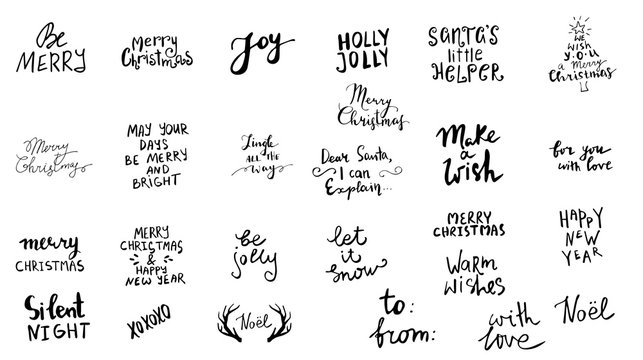 Be
MERRY
Merry
Christmas
Joy
HOLLY
JOLLY
SANTA'S
little
HELPER
WE
WISH
Y·O·U
a Merry
Christmas
Merry
Christmas
MAY YOUR
DAYS
BE MERRY
AND
BRIGHT
Jingle
ALL THE
Way
Merry
Christmas
Dear Santa,
I can
Explain...
Make
a
Wish
for you
with love
merry
CHRISTMAS
MERRY
CHRICTMAS
&
HAPPY
NEW YEAR
be
jolly
let
it
snow
MERRY
CHRISTMAS
Warm
wishes
HAPPY
NEW
YEAR
Silent
NIGHT
XOXOXO
Noël
to:
from:
with
love
Noël